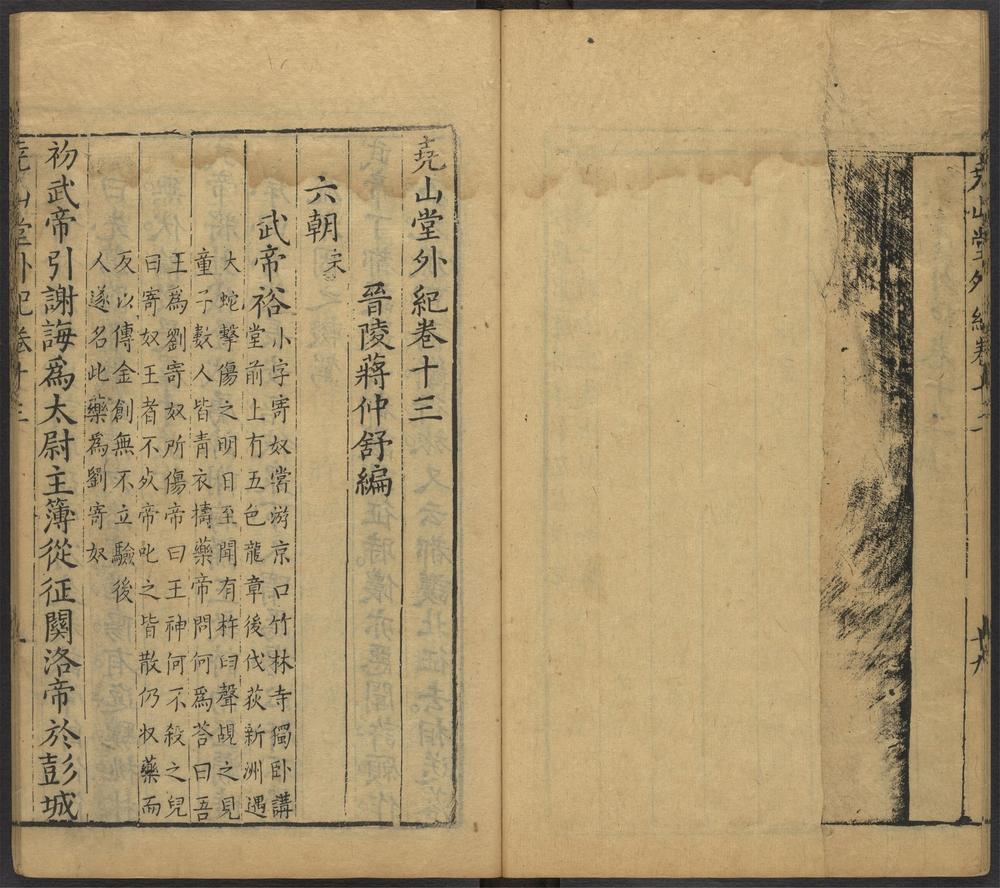 堯山堂外紀卷十
十九
堯山堂外紀卷十三
晉陵蔣仲舒編
六朝宋
武帝裕小字寄奴嘗游京口竹林寺獨卧講
堂前上有五色龍章後伐荻新洲遇
大蛇擊傷之明日至聞有杵臼聲覘之見
童子數人皆青衣擣藥帝問何爲荅曰吾
王爲劉寄奴所傷帝曰王神何不殺之兒
曰寄奴王者不死帝叱之皆散仍收藥而
反以傳金創無不立驗後
人遂名此藥爲劉寄奴
初武帝引謝誨爲太尉主簿從征關洛帝於彭城
堯山堂外紀卷十三
一